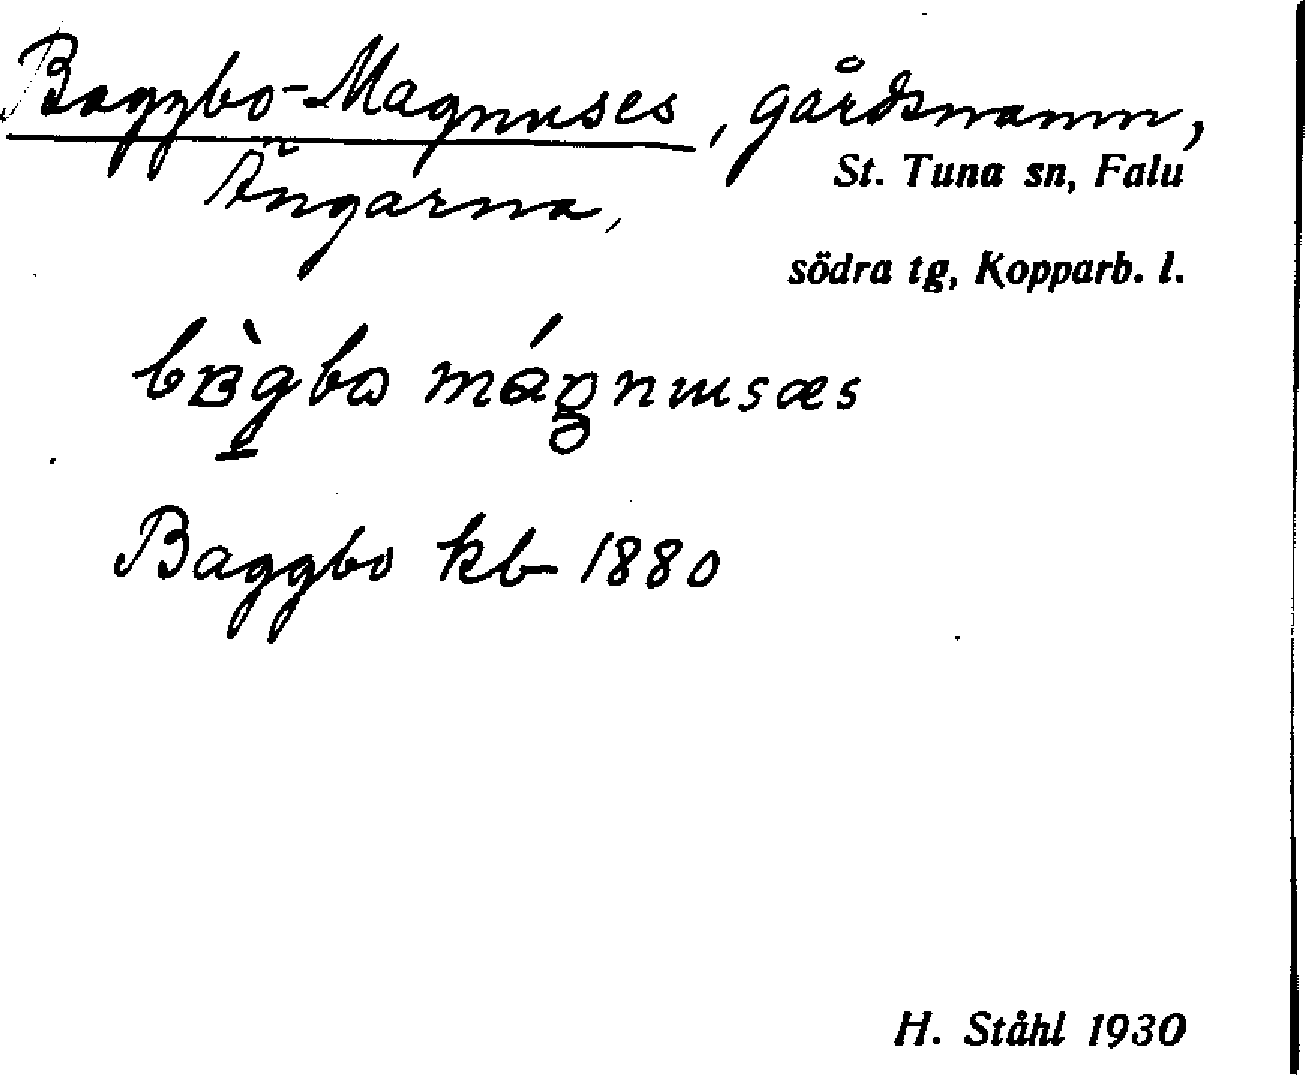 Baggbo-Magnuses, gårdsnamn,
Ängarna, St. Tuna sn, Falu
södra tg, Kopparb. l.
Baggbo kb 1880
H. Ståhl 1930